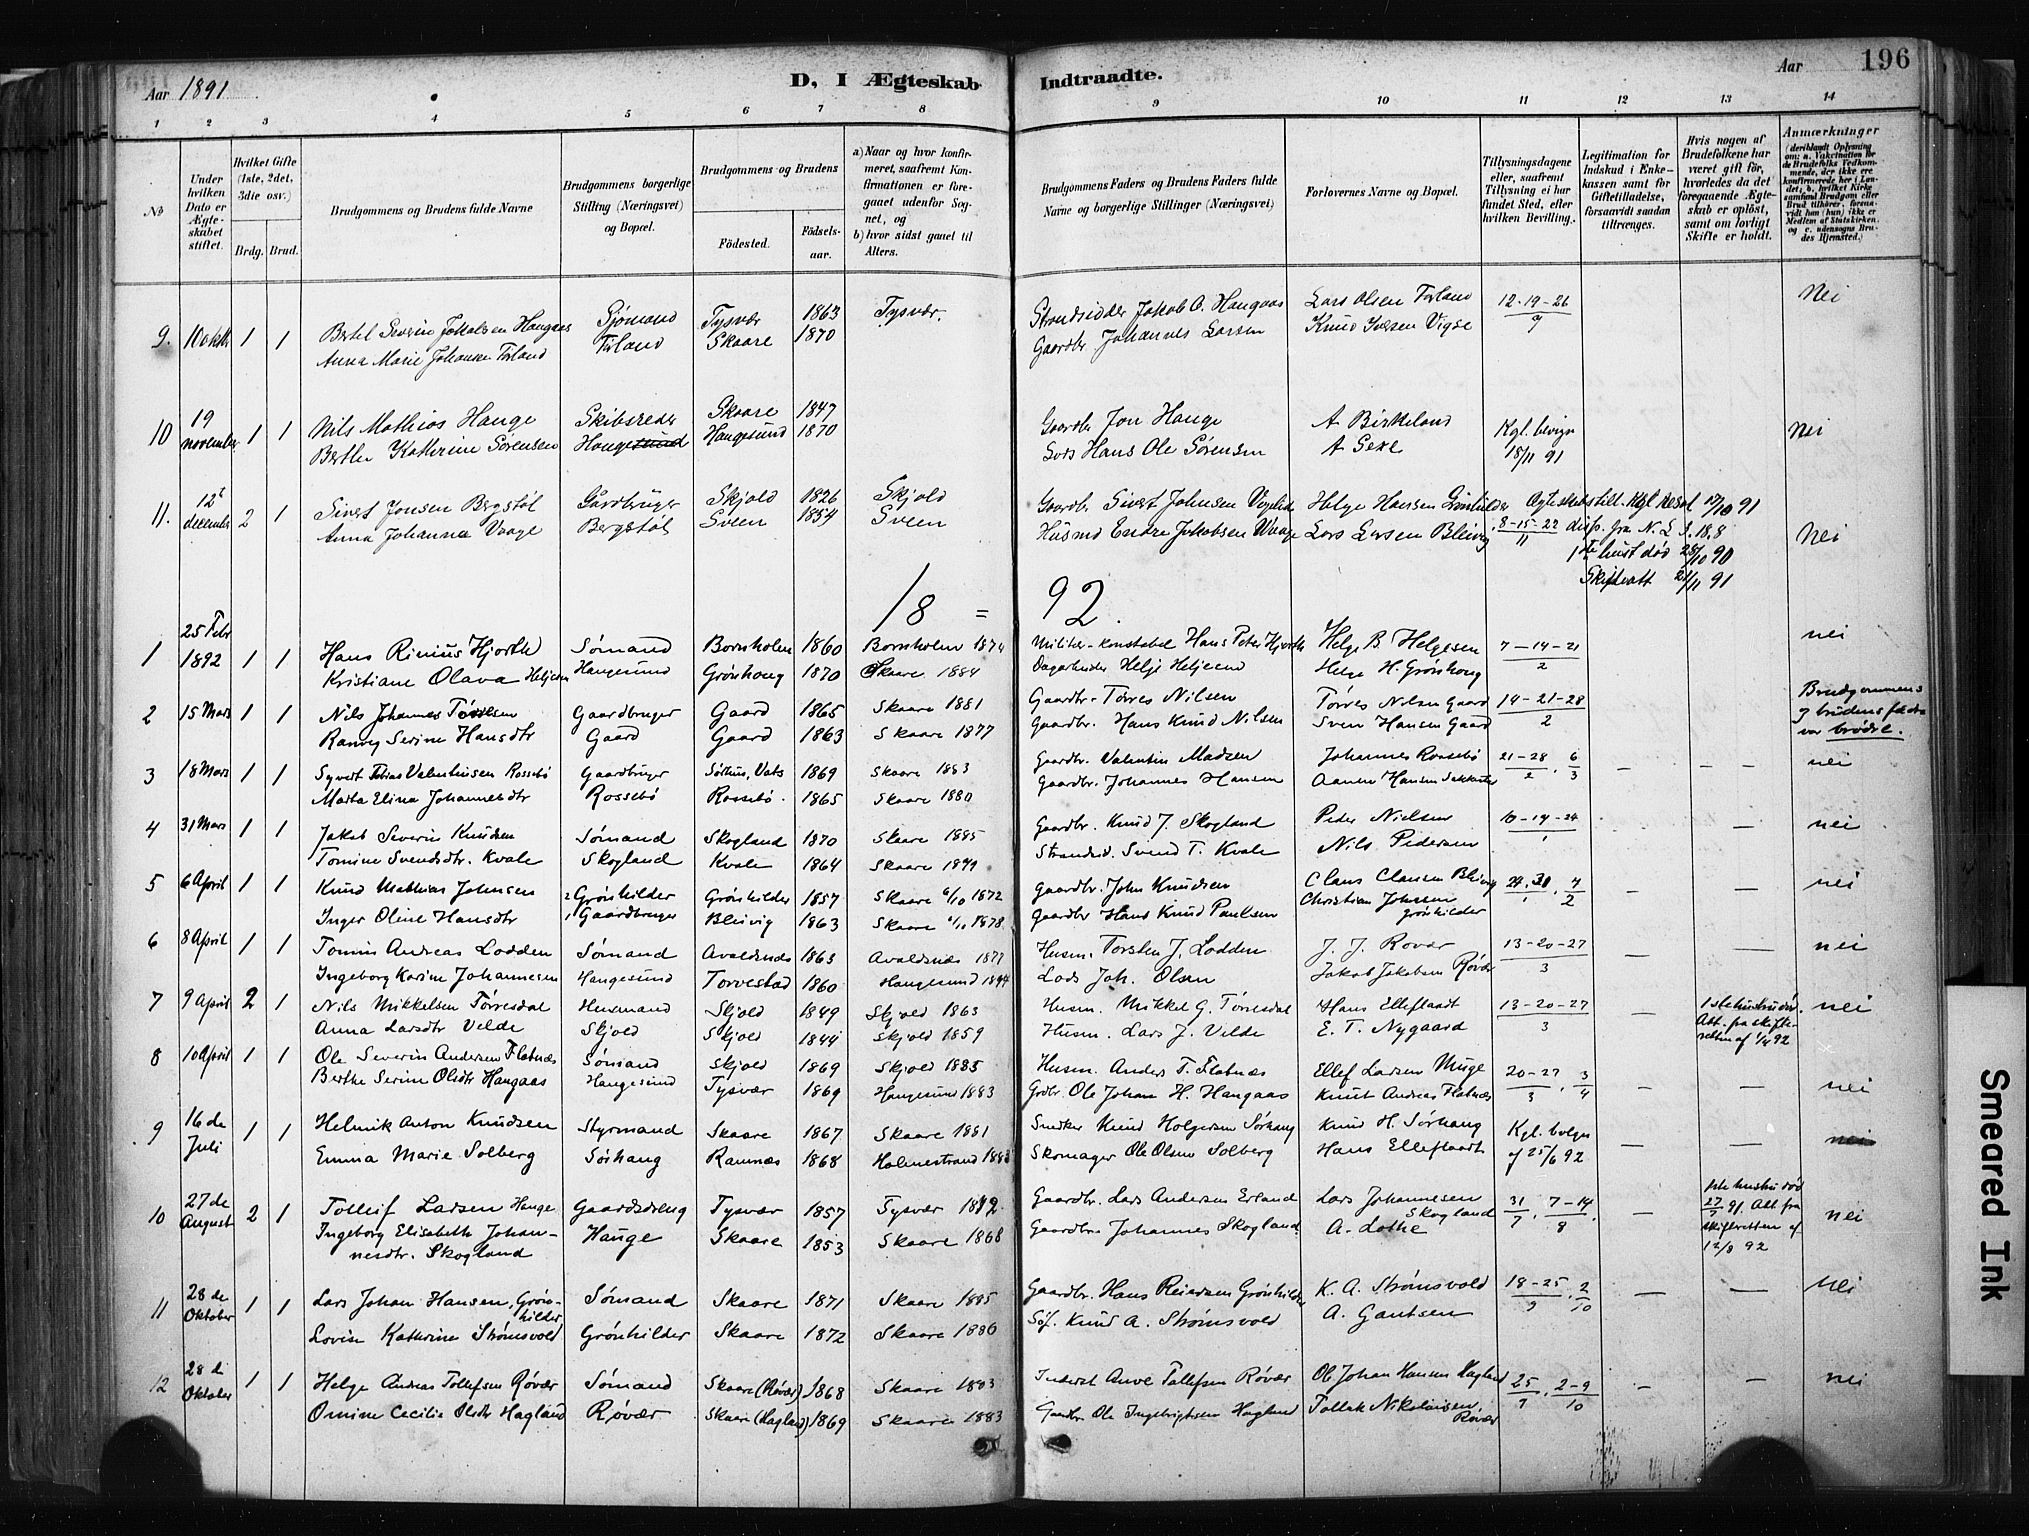 Aar 1891
D, I Ægteskab Indtraadte.
Aar 196
1 2 3 4 5 6 7 8 9 10 11 12 13 14
No
Under hvilken Dato er Ægteskabet stiftet.
Hvilket Gifte (1ste, 2det, 3die osv.)
Brdg. Brud.
Brudgommens og Brudens fulde Navne
Brudgommens borgerlige Stilling (Næringsvei) og Bopæl.
Brudgommens og Brudens
Fødested. Fødselsaar.
a) Naar og hvor konfirmeret, saafremt Konfirmationen er foregaaet udenfor Sognet, og b) hvor sidst gaaet til Alters.
Brudgommens Faders og Brudens Faders fulde Navne og borgerlige Stillinger (Næringsvei)
Forlovernes Navne og Bopæl.
Tillysningsdagene eller, saafremt Tillysning ei har fundet Sted, efter hvilken Bevilling.
Legitimation for Indskud i Enkekassen samt for Giftetilladelse, forsaavidt saadan tiltrænges.
Hvis nogen af Brudefolkene har været gift før, hvorledes da det foregaaende Ægteskab er opløst, samt om lovligt Skifte er holdt.
Anmærkninger
9. 10 oktb 1 1 Bertel Severin Jakobsen Haugaas Sjømand Tysvær 1863 Tysvær. Strandsidder Jakob O. Haugaas Lars Olsen Førland 12-19-26 Nei
Anna Marie Johansen Førland Førland Skaare 1870 Gaardbr Johannes Larsen Knud Vigse 9
10 19 november 1 1 Nils Mathias Hauge Skibsreder Skaare 1847 Gaardbr Jon Hauge A Birkeland Kgl. bevign nei
Berthe Kathrine Sørensen Haugesund Haugesund 1870 Lods Hans Ole Sørensen A Sexe 18/11 91
11. 12t december 2 1 Sivert Jonsen Bergstøl Gardbruger Skjold 1826 Skjold Gaardbr Sivert Johnsen Helge Hansen Grønhilder Kgl Resol 17/10 91
Anna Johanna Vaage Bergstøl Sveen 1854 Sveen Husmd Endre Jakobsen Waage Lars Larsen Bleivig 8-15-22/11 disp. fra N. L 3.18.8 Nei
1ste hust død 25/10 90
Skifteatt 21/11 91
18 = 92.
1 25 Febr 1892 1 1 Hans Rinius Hjorth Sømand Bornholm 1860 Bornholm 1874 Militær-konstabel Hans Peter Hjorth Helge B. Helgesen 7-14-21 nei
Kristiane Olava Heljesen Haugesund Grønhoug 1870 Skaare 1884 Dagarbeider Helje Heljesen Helge H. Grønhoug 2
2 15 Mars 1 1 Nils Johannes Tørresen Gaardbruger Gaard 1865 Skaare 1881 Gaardbr. Tørres Nilsen Tørres Nilsen Gaard 14-21-28 Brudgommens
Ranveg Serine Hansdtr Gaard Gaard 1863 Skaare 1877 Gaardbr. Hans Knud Nilsen Sven Hansen Gaard 2 og brudens fædre var brødre.
3 18 Mars 1 1 Syvert Tobias Valentinsen Rossebø Gaardbruger Sørhus, Vats 1869 Skaare 1883 Gaardbr. Valentin Madsen Johannes Rossebø 21-28/2 . 6/3 — — — nei
Marta Elina Johannesdtr Rossebø Rossebø. 1865 Skaare 1880 Gaardbr. Johannes Hansen Aanen Hansen
4 31 Mars 1 1 Jakob Severin Knudsen Sømand Skogland 1870 Skaare 1885 Gaardbr. Knud J. Skogland Peder Nielsen 10-14-24 — nei
Tomine Svendsdtr. Kvale Skogland Kvale 1864 Skaare Strandsd. Svend T. Kvale Nils Pedersen 1
5 6 April 1 1 Knud Mathias Johnsen 2 Grønhilder Grønhilder 1857 Skaare 6/10 1872 Gaardbr. John Knudsen Claus Clausen Bleivig 24.31/1 . 7/2 — — nei
Inger Oline Hansdtr 1 Gaardbruger Bleivig 1863 Skaare 1878 Gaardbr Hans Knud Paulsen Christian Johnsen Grønhilder
6 8 April 1 1 Tomin Andreas Lodden Sømand Avaldsnæs 1863 Avaldsnæs 1877 Husm. Torsten J. Lodden J. J. Rovær 13-20-27 — — nei
Ingeborg Karine Johannesen Haugesund Torvestad 1860 Haugesund Lods Joh. Olsen Jakob Jakobsen Røvær 3
7 9 April 2 1 Nils Mikkelsen Tørresdal Husmand Skjold 1849 Skjold 1863 Husm. Mikkel G. Tørresdal Hans Elleflaadt 13-20-27 — 1ste hustru død. nei
Anna Larsdtr Velde Skjold Skjold 1844 Skjold 1859 Husm. Lars J. Velde E. T. Nygaard 3 Att. fra skifteretten af 1/4 92
8 10 April 1 1 Ole Severin Andersen Flatnæs Sømand Skjold 1869 Skjold 1885 Husm. Anders T. Flatnæs Ellef Larsen Muge 20-27/3 . 3/4 — — nei
Berthe Serine Olsdtr Haugaas Haugesund Tysvær 1869 Haugesund 1883 Grdbr. Ole Johan H. Haugaas Knut Andreas Flatnæs
9 16de Juli 1 1 Helmik Anton Knudsen Styrmand Skaare 1867 Skaare 1881 Snedker Knud Holgersen Sørhaug Knud H. Sørhaug Kgl. bvlgn — — nei
Emma Marie Solberg Sørhaug Ramnæs 1868 Holmestrand 1883 Skomager Ole Olsen Solberg Hans Elleflaadt af 25/6 92
10 27de August 2 1 Tolleif Larsen Hauge Gaardsdreng Tysvær 1857 Tysvær 1872 Gaardbr. Lars Andersen Erland Lars Johannesen Skogland 31/7 . 7-14/8 . — 1ste hustru død 27/7 91. Att fra skifteretten af 12/8 92 nei
Ingeborg Elisabeth Johannesdtr. Skogland Hauge Skaare 1853 Skaare 1868 Gaardbr. Johannes Skogland A. Lothe
11 28de Oktober 1 1 Lars Johan Hansen, Grønhilder Sømand Skaare 1871 Skaare 1885 Gaardbr. Hans Reiersen Grønhilder K. A. Strømsvold 18-25/9 . 2/10 — — nei
Lovise Kathrine Strømsvold Grønhilder Skaare 1872 Skaare 1886 Søf. Knud A. Strømsvold A. Gautsen
12 28d Oktober 1 1 Helge Andreas Tollefsen Røvær Sømand Skaare (Røvær) 1868 Skaare 1883 Inderst Anve Tollefsen Røvær Ole Johan Hansen Hagland 25/9 . 2-9/10 — — nei
Omine Cecilie Olsdtr Hagland Røvær Skaare (Hagland) 1869 Skaare 1883 Gaardbr Ole Ingebrigtsen Hagland Tollak Nikolaisen Røvær
Smeared Ink